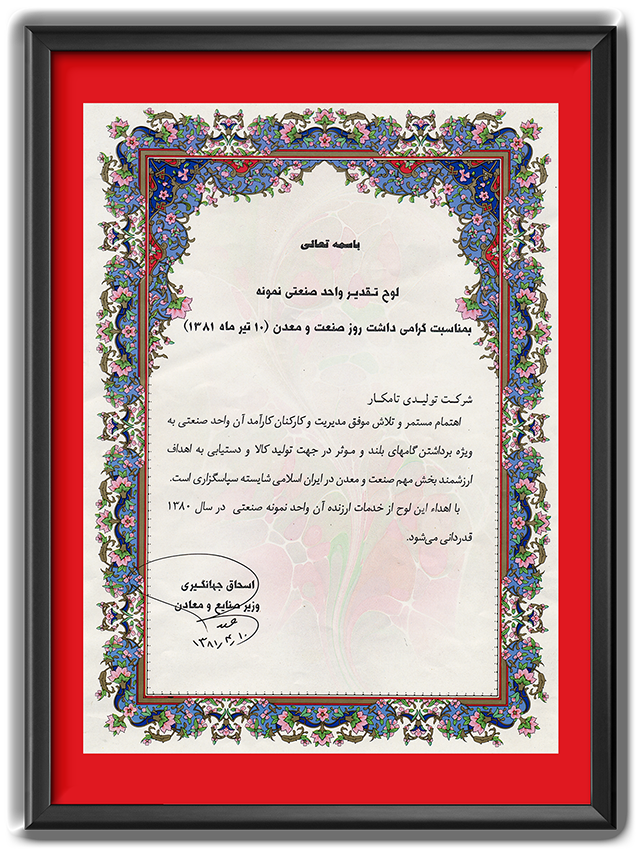 باسمه تعالی
لوح تقدیر واحد صنعتی نمونه
بمناسبت گرامی داشت روز صنعت و معدن (۱۰ تیر ماه ۱۳۸۱)
شرکت تولیدی تامکار
اهتمام مستمر و تلاش موفق مدیریت و کارکنان کارآمد آن واحد صنعتی به
ویژه برداشتن گامهای بلند و موثر در جهت تولید کالا و دستیابی به اهداف
ارزشمند بخش مهم صنعت و معدن در ایران اسلامی شایسته سپاسگزاری است.
با اهداء این لوح از خدمات ارزنده آن واحد نمونه صنعتی در سال ۱۳۸۰
قدردانی می‌شود.
اسحاق جهانگیری
وزیر صنایع و معادن
۱۳۸۱/۴/۱۰